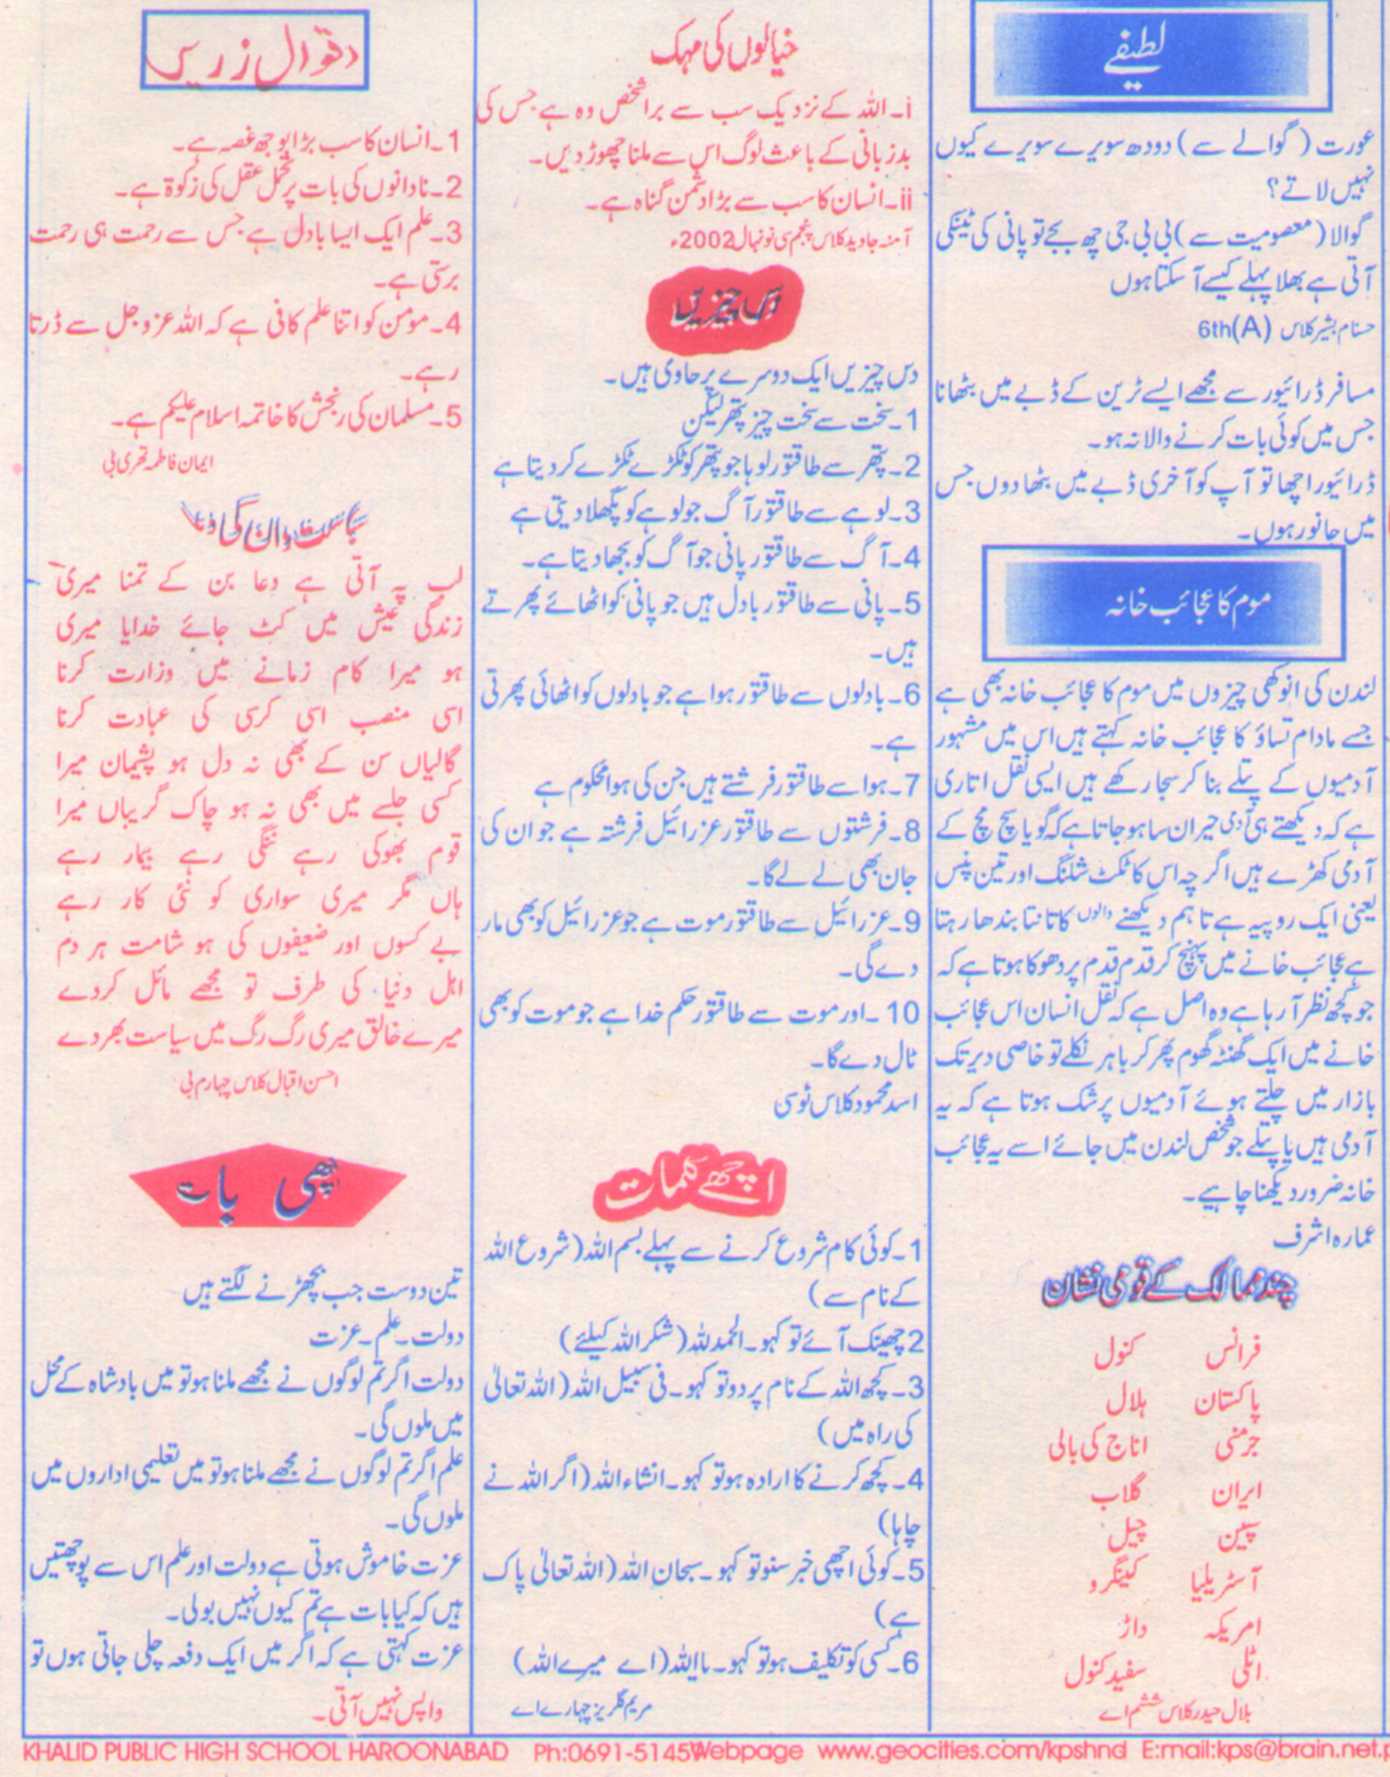 لطیفے
عورت (گوالے سے) دودھ سویرے سویرے کیوں
نہیں لاتے؟
گوالا (معصومیت سے) بی بی جی چھ بجے تو پانی کی ٹینکی
آتی ہے بھلا پہلے کیسے آ سکتا ہوں
حسنام بشیر کلاس 6th(A)
مسافر ڈرائیور سے مجھے ایسے ٹرین کے ڈبے میں بٹھانا
جس میں کوئی بات کرنے والا نہ ہو۔
ڈرائیور اچھا تو آپ کو آخری ڈبے میں بٹھا دوں جس
میں جانور ہوں۔
موم کا عجائب خانہ
لندن کی انوکھی چیزوں میں موم کا عجائب خانہ بھی ہے
جسے مادام تساؤ کا عجائب خانہ کہتے ہیں اس میں مشہور
آدمیوں کے پتلے بنا کر سجا رکھے ہیں ایسی نقل اتاری
ہے کہ دیکھتے ہی آدمی حیران سا ہو جاتا ہے کہ گویا سچ مچ کے
آدمی کھڑے ہیں اگرچہ اس کا ٹکٹ شلنگ اور تین پنس
یعنی ایک روپیہ ہے تاہم دیکھنے والوں کا تانتا بندھا رہتا
ہے عجائب خانے میں پہنچ کر قدم قدم پر دھوکا ہوتا ہے کہ
جو کچھ نظر آ رہا ہے وہ اصل ہے کہ نقل انسان اس عجائب
خانے میں ایک گھنٹہ گھوم پھر کر باہر نکلے تو خاصی دیر تک
بازار میں چلتے ہوئے آدمیوں پر شک ہوتا ہے کہ یہ
آدمی ہیں یا پتلے جو شخص لندن میں جائے اسے یہ عجائب
خانہ ضرور دیکھنا چاہیے۔
عمارہ اشرف
چند ممالک کے قومی نشان
فرانس کنول
پاکستان ہلال
جرمنی اناج کی بالی
ایران گلاب
سپین چیل
آسٹریلیا کینگرو
امریکہ داڑ
اٹلی سفید کنول
بلال حیدر کلاس ششم اے
خیالوں کی مہک
i۔ اللہ کے نزدیک سب سے برا شخص وہ ہے جس کی
بدزبانی کے باعث لوگ اس سے ملنا چھوڑ دیں۔
ii۔ انسان کا سب سے بڑا دشمن گناہ ہے۔
آمنہ جاوید کلاس پنجم سی نونہال 2002ء
دس چیزیں
دس چیزیں ایک دوسرے پر حاوی ہیں۔
1۔ سخت سے سخت چیز پتھر لیکن
2۔ پتھر سے طاقتور لوہا جو پتھر کو ٹکڑے ٹکڑے کر دیتا ہے
3۔ لوہے سے طاقتور آگ جو لوہے کو پگھلا دیتی ہے
4۔ آگ سے طاقتور پانی جو آگ کو بجھا دیتا ہے۔
5۔ پانی سے طاقتور بادل ہیں جو پانی کو اٹھائے پھرتے
ہیں۔
6۔ بادلوں سے طاقتور ہوا ہے جو بادلوں کو اٹھائی پھرتی
ہے۔
7۔ ہوا سے طاقتور فرشتے ہیں جن کی ہوا محکوم ہے
8۔ فرشتوں سے طاقتور عزرائیل فرشتہ ہے جو ان کی
جان بھی لے لے گا۔
9۔ عزرائیل سے طاقتور موت ہے جو عزرائیل کو بھی مار
دے گی۔
10۔ اور موت سے طاقتور حکم خدا ہے جو موت کو بھی
ٹال دے گا۔
اسد محمود کلاس ٹو سی
اچھے کلمات
1۔ کوئی کام شروع کرنے سے پہلے بسم اللہ (شروع اللہ
کے نام سے)
2 چھینک آئے تو کہو۔ الحمدللہ (شکر اللہ کیلئے)
3۔ کچھ اللہ کے نام پر دو تو کہو۔ فی سبیل اللہ (اللہ تعالیٰ
کی راہ میں)
4۔ کچھ کرنے کا ارادہ ہو تو کہو۔ انشاء اللہ (اگر اللہ نے
چاہا)
5۔ کوئی اچھی خبر سنو تو کہو۔ سبحان اللہ (اللہ تعالیٰ پاک
ہے)
6۔ کسی کو تکلیف ہو تو کہو۔ یا اللہ (اے میرے اللہ)
مریم گلریز چہارے اے
اقوال زریں
1۔ انسان کا سب بڑا بوجھ غصہ ہے۔
2۔ نادانوں کی بات پر تحمل عقل کی زکوٰۃ ہے۔
3۔ علم ایک ایسا بادل ہے جس سے رحمت ہی رحمت
برستی ہے۔
4۔ مومن کو اتنا علم کافی ہے کہ اللہ عزوجل سے ڈرتا
رہے۔
5۔ مسلمان کی رنجش کا خاتمہ اسلام علیکم ہے۔
ایمان فاطمہ تھری بی
سیاست دان کی دعا
لب پہ آتی ہے دعا بن کے تمنا میری
زندگی عیش میں کٹ جائے خدایا میری
ہو میرا کام زمانے میں وزارت کرنا
اسی منصب اسی کرسی کی عبادت کرنا
گالیاں سن کے بھی نہ دل ہو پشیمان میرا
کسی جلسے میں بھی نہ ہو چاک گریباں میرا
قوم بھوکی رہے ننگی رہے بیمار رہے
ہاں مگر میری سواری کو نئی کار رہے
بے کسوں اور ضعیفوں کی ہو شامت ہر دم
اہل دنیا کی طرف تو مجھے مائل کر دے
میرے خالق میری رگ رگ میں سیاست بھر دے
احسن اقبال کلاس چہارم بی
اچھی بات
تین دوست جب بچھڑنے لگتے ہیں
دولت۔ علم۔ عزت
دولت اگر تم لوگوں نے مجھے ملنا ہو تو میں بادشاہ کے محل
میں ملوں گی۔
علم اگر تم لوگوں نے مجھے ملنا ہو تو میں تعلیمی اداروں میں
ملوں گی۔
عزت خاموش ہوتی ہے دولت اور علم اس سے پوچھتیں
ہیں کہ کیا بات ہے تم کیوں نہیں بولی۔
عزت کہتی ہے کہ اگر میں ایک دفعہ چلی جاتی ہوں تو
واپس نہیں آتی۔
KHALID PUBLIC HIGH SCHOOL HAROONABAD Ph:0691-5145 Webpage www.geocities.com/kpshnd E:mail:kps@brain.net.p